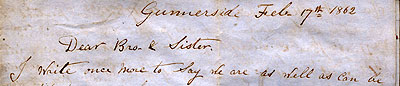 Gunnerside Feb 17th 1862
Dear Bro. & Sister.
I write once more to say we are as well as can be